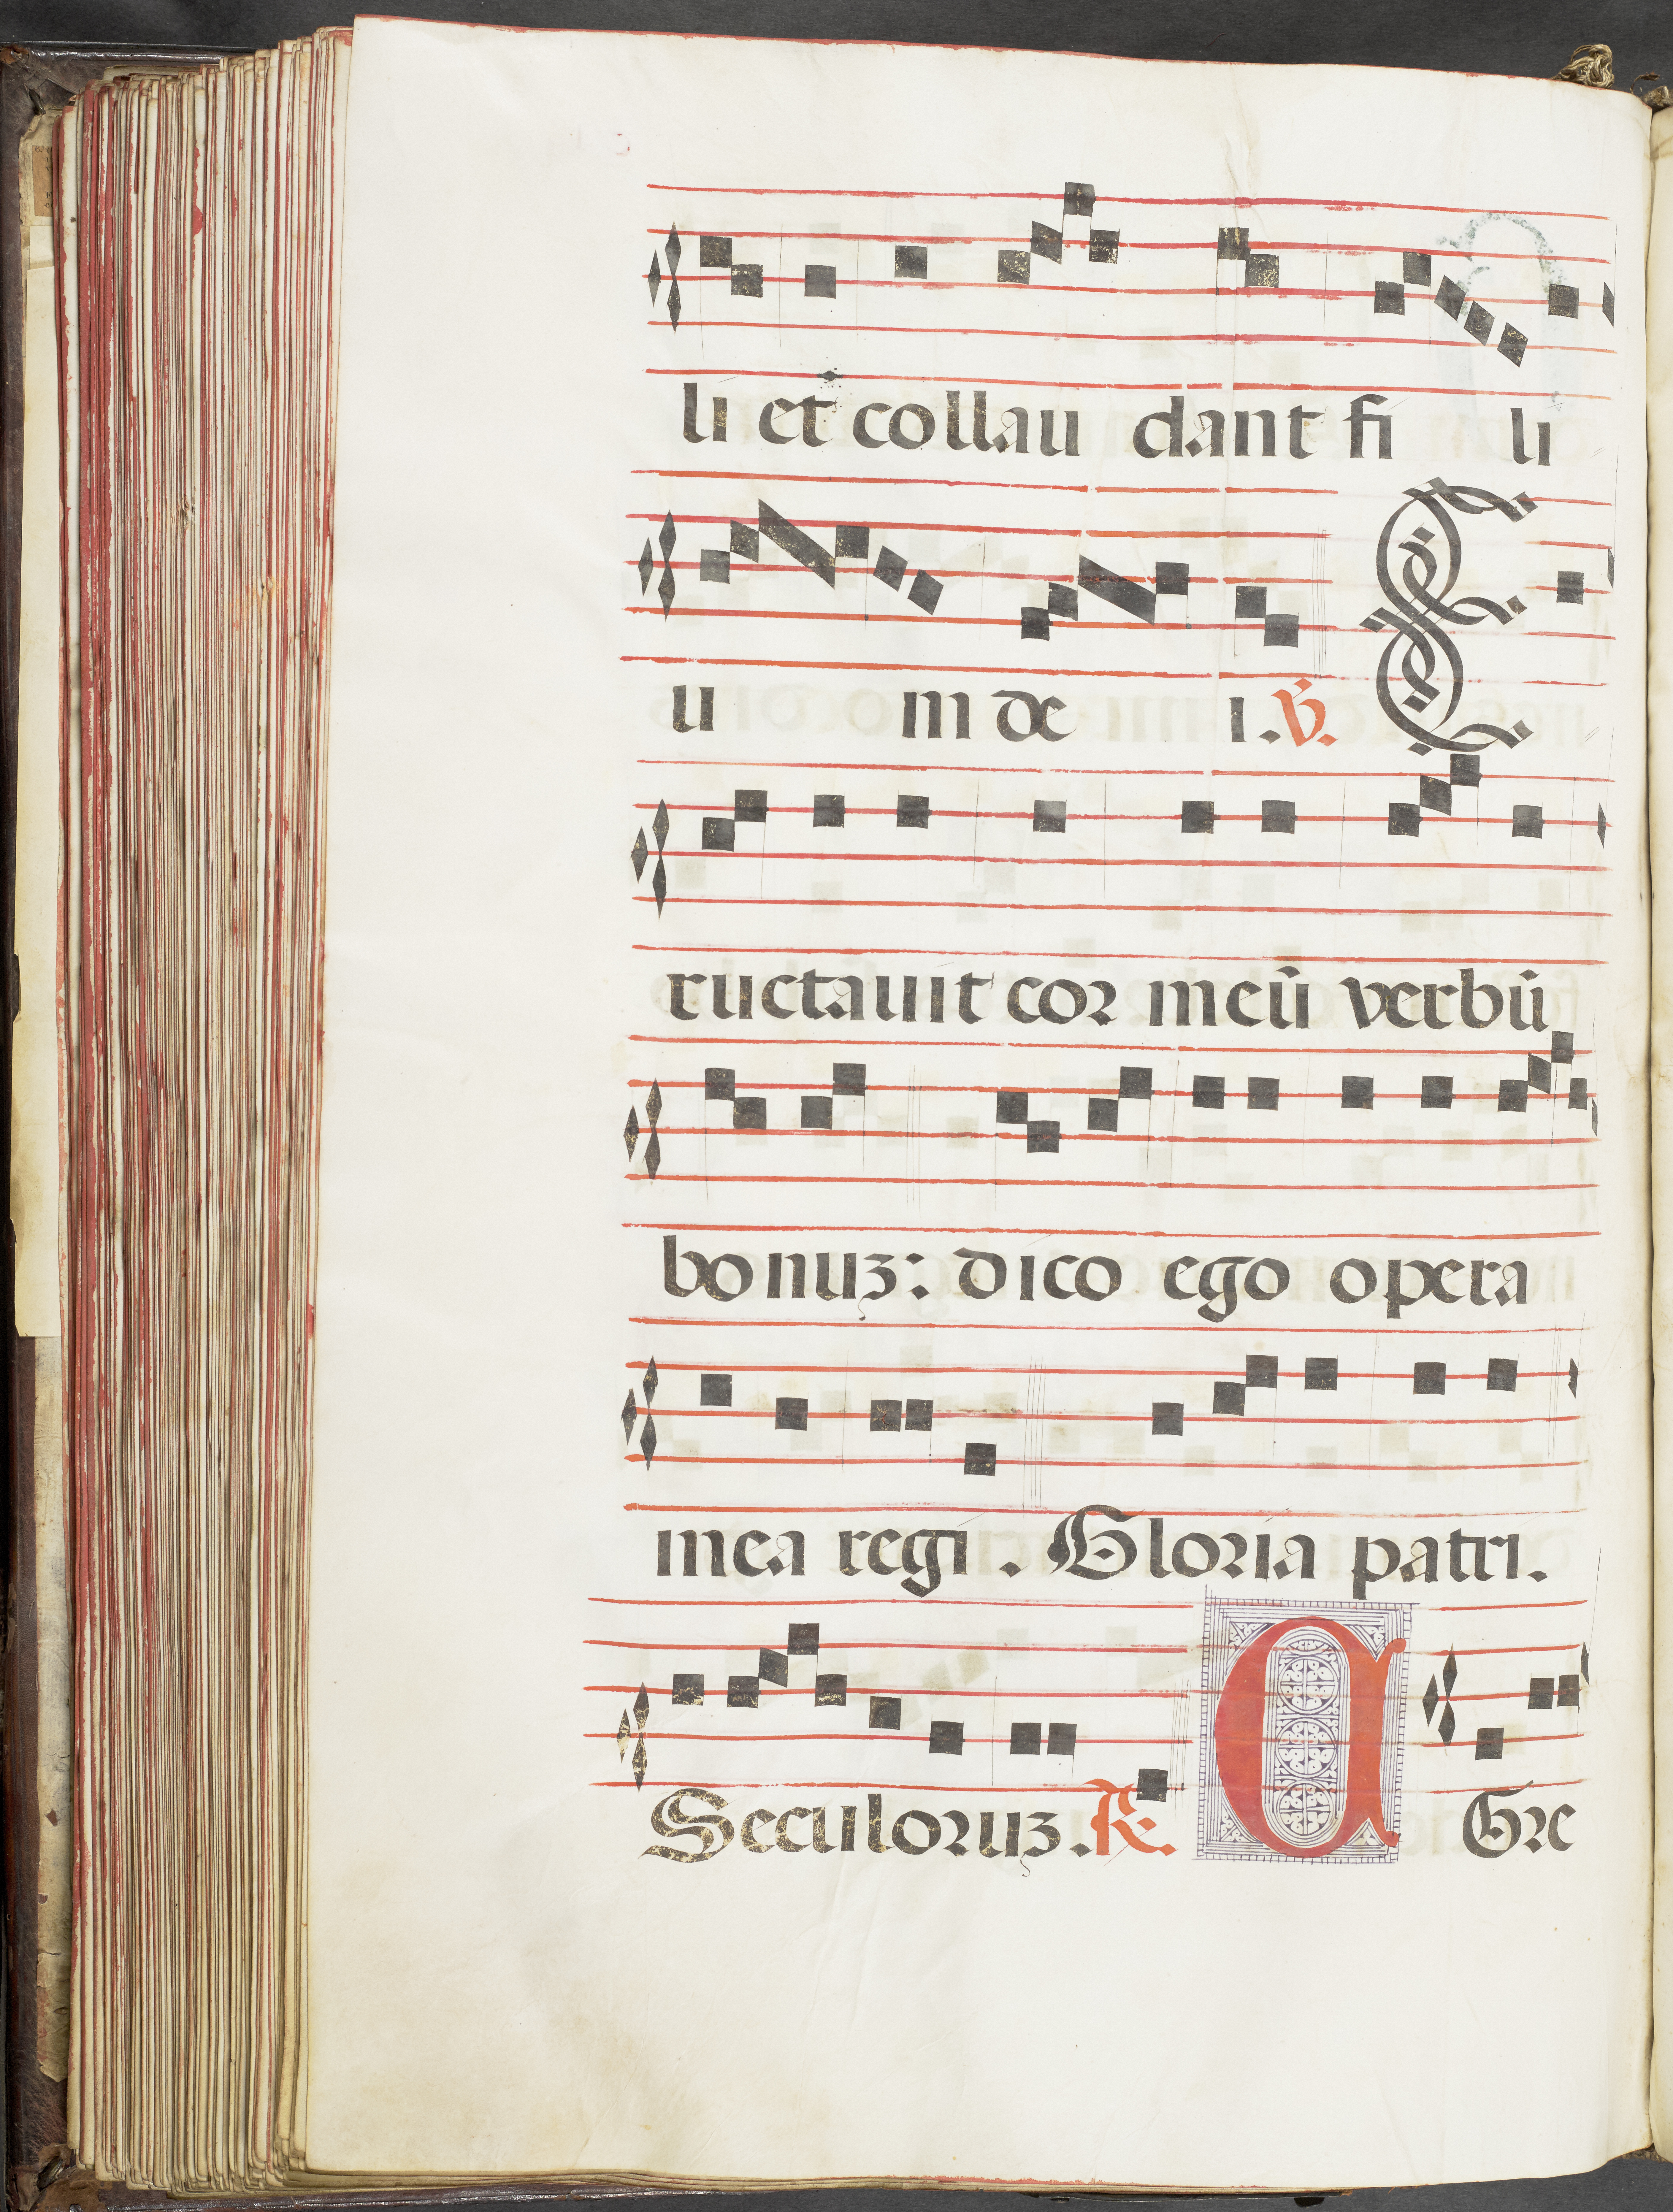 li et collau dant fi li
u m de i. ℣. E
ructauit cor meū verbū
bonuʒ: dico ego opera
mea regi. Gloria patri.
Seculoruʒ. ℟. A Gre